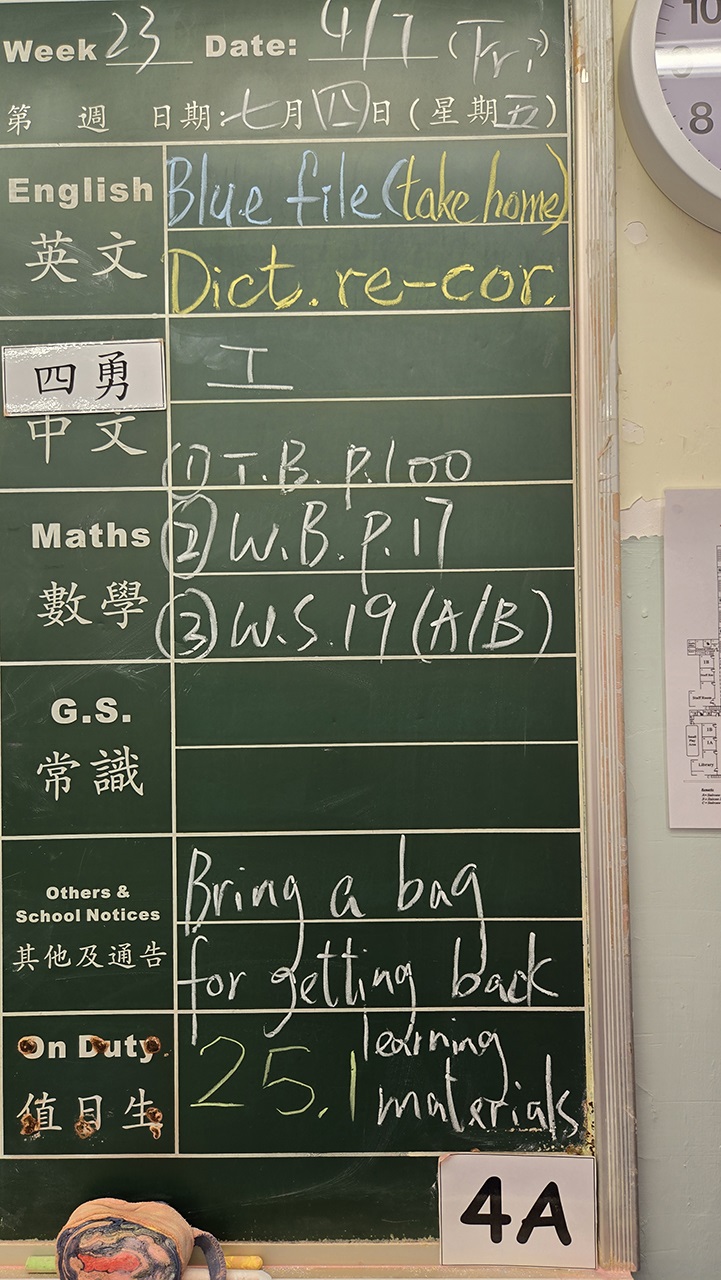 Week 23 Date: 4/7 (Fri)
第 週 日期:七月四日(星期五)
English Blue file (take home)
英文 Dict. re-cor.
四勇 工
中文
① T.B. P.100
Maths ② W.B. P.17
數學 ③ W.S.19 (A/B)
G.S.
常識
Others &
School Notices
其他及通告
Bring a bag
for getting back
learning
materials
On Duty
值日生
25.1
4A
10
9
8
Staff Room
1B
1A
Library